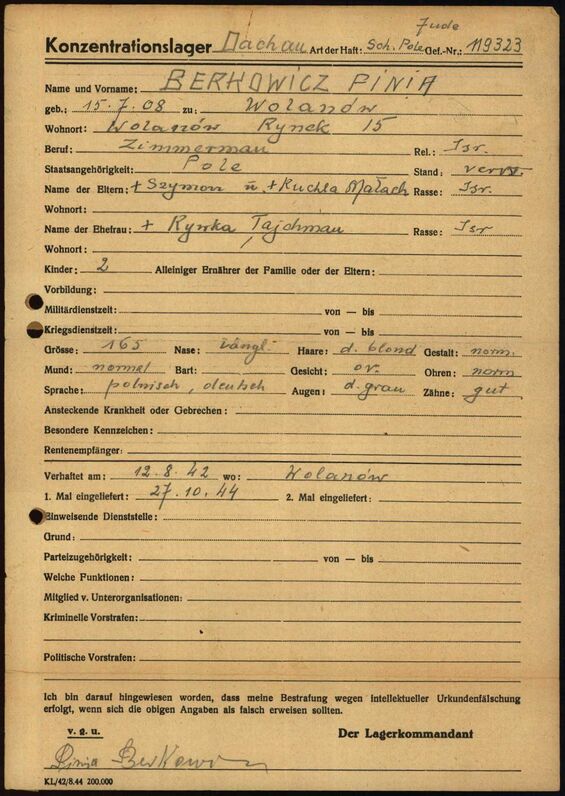 Jude
Konzentrationslager Dachau Art der Haft: Sch. Pole Gef.-Nr.: 119323
Name und Vorname: BERKOWICZ PINIA
geb.: 15.7.08 zu: Wolanów
Wohnort: Wolanów Rynek 15
Beruf: Zimmerman Rel.: Isr.
Staatsangehörigkeit: Pole Stand: verw.
Name der Eltern: + Szymon u. + Ruchla Małach Rasse: Isr.
Wohnort:
Name der Ehefrau: + Rywka Tajchman Rasse: Isr
Wohnort:
Kinder: 2 Alleiniger Ernährer der Familie oder der Eltern:
Vorbildung:
Militärdienstzeit: von — bis
Kriegsdienstzeit: von — bis
Grösse: 165 Nase: längl. Haare: d. blond Gestalt: norm.
Mund: normal Bart: Gesicht: ov. Ohren: norm
Sprache: polnisch, deutsch Augen: d. grau Zähne: gut
Ansteckende Krankheit oder Gebrechen:
Besondere Kennzeichen:
Rentenempfänger:
Verhaftet am: 12.8.42 wo: Wolanów
1. Mal eingeliefert: 27.10.44 2. Mal eingeliefert:
Einweisende Dienststelle:
Grund:
Parteizugehörigkeit: von — bis
Welche Funktionen:
Mitglied v. Unterorganisationen:
Kriminelle Vorstrafen:
Politische Vorstrafen:
Ich bin darauf hingewiesen worden, dass meine Bestrafung wegen intellektueller Urkundenfälschung
erfolgt, wenn sich die obigen Angaben als falsch erweisen sollten.
v. g. u. Der Lagerkommandant
Pinia
KL/42/8.44 200.000